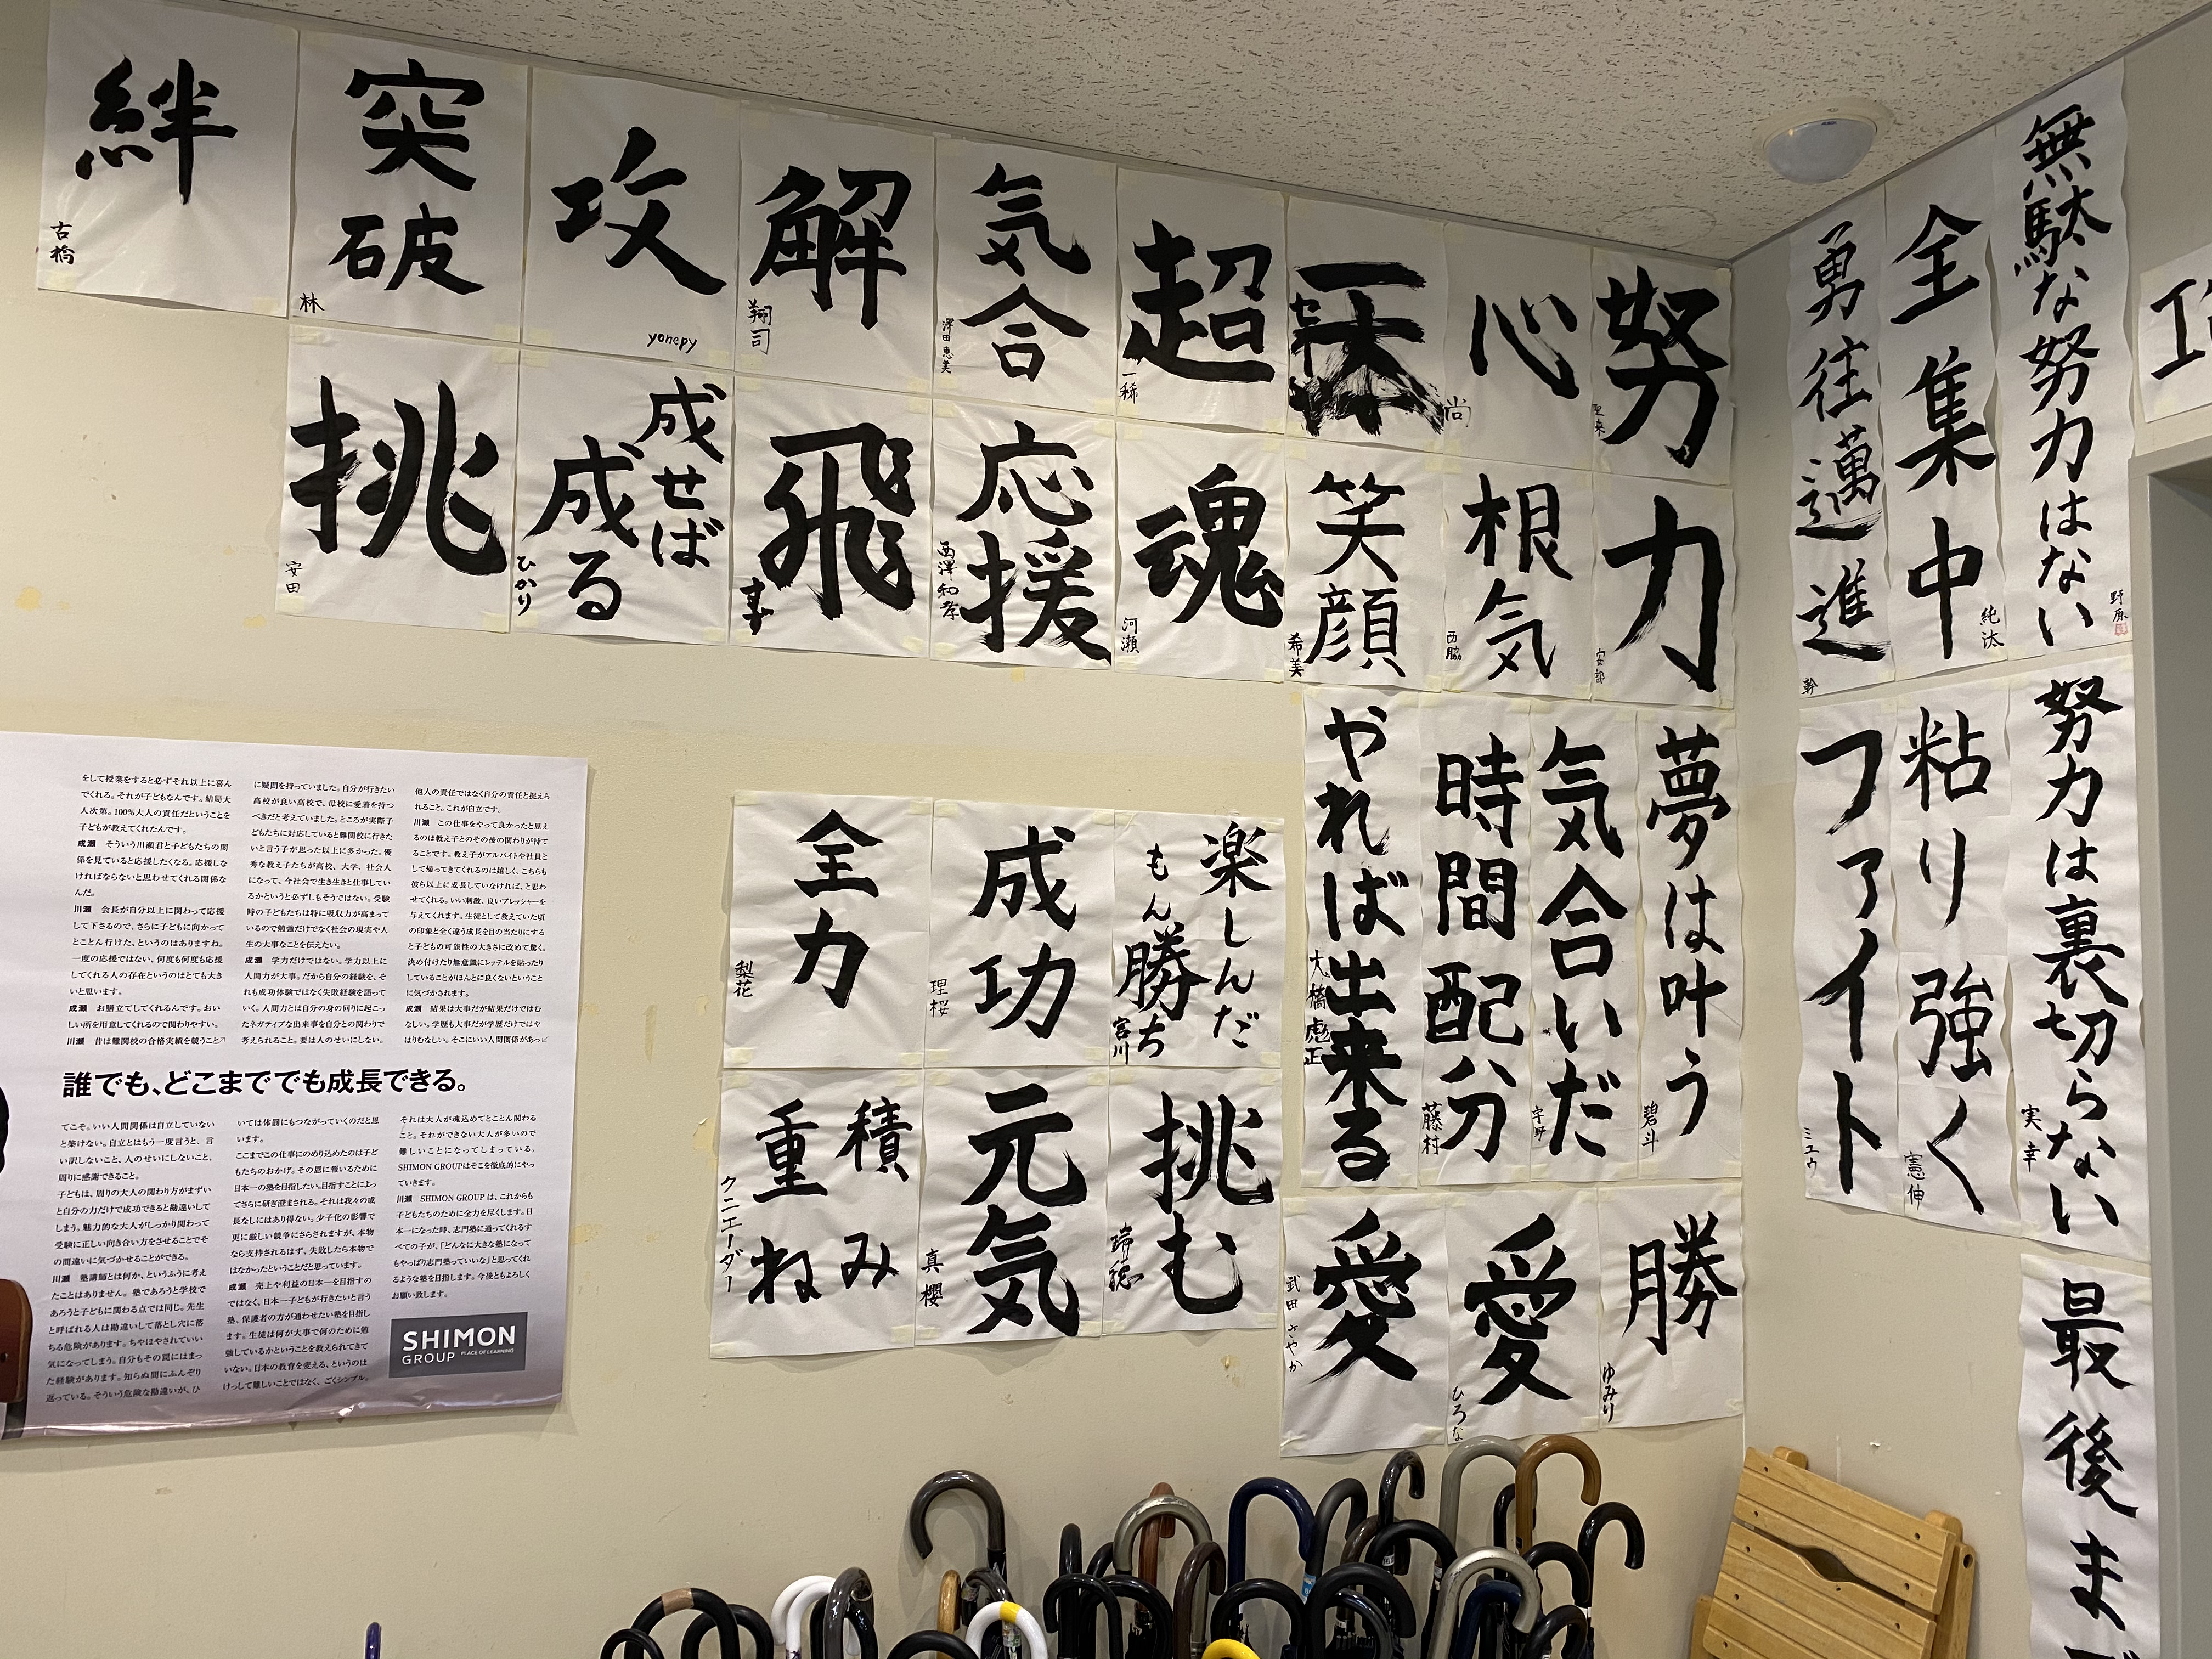 絆
古橋
突破
林
攻
yonepy
解
翔司
気合
澤田恵美
超
一稀
心
尚
努
挑
安田
成せば
成る
ひかり
飛
応援
西澤和孝
魂
河瀬
笑顔
希美
根気
西脇
力
安部
勇往邁進
幹
全集中
純汰
無駄な努力はない
野原
ファイト
ミュウ
粘り強く
憲伸
努力は裏切らない
実幸
最後まで
やれば出来る
大橋虎正
時間配分
藤村
気合いだ
宇野
夢は叶う
碧斗
全力
梨花
成功
理桜
楽しんだ
もん勝ち
宮川
積み
重ね
クニエーダー
元気
真櫻
挑む
瑞穂
愛
武田さやか
愛
ひろな
勝
ゆみり
をして授業をすると必ずそれ以上に喜ん
でくれる。それが子どもなんです。結局大
人次第。100%大人の責任だということを
子どもが教えてくれたんです。
成瀬　そういう川瀬君と子どもたちの関
係を見ていると応援したくなる。応援しな
ければならないと思わせてくれる関係な
んだ。
川瀬　会長が自分以上に関わって応援
して下さるので、さらに子どもに向かって
とことん行けた、というのはありますね。
一度の応援ではない、何度も何度も応援
してくれる人の存在というのはとても大き
いと思います。
成瀬　お膳立てしてくれるんです。おい
しい所を用意してくれるので関わりやすい。
川瀬　昔は難関校の合格実績を競うこと
に疑問を持っていました。自分が行きたい
高校が良い高校で、母校に愛着を持つ
べきだと考えていました。ところが実際子
どもたちに対応していると難関校に行きた
いと言う子が思った以上に多かった。優
秀な教え子たちが高校、大学、社会人
になって、今社会で生き生きと仕事してい
るかというと必ずしもそうではない。受験
時の子どもたちは特に吸収力が高まって
いるので勉強だけでなく社会の現実や人
生の大事なことを伝えたい。
成瀬　学力だけではない。学力以上に
人間力が大事。だから自分の経験を、そ
れも成功体験ではなく失敗経験を語って
いく。人間力とは自分の身の回りに起こっ
たネガティブな出来事を自分との関わりで
考えられること。要は人のせいにしない。
他人の責任ではなく自分の責任と捉えら
れること。これが自立です。
川瀬　この仕事をやって良かったと思え
るのは教え子とのその後の関わりが持て
ることです。教え子がアルバイトや社員と
して帰ってきてくれるのは嬉しく、こちらも
彼ら以上に成長していなければ、と思わ
せてくれる。いい刺激、良いプレッシャーを
与えてくれます。生徒として教えていた頃
の印象と全く違う成長を目の当たりにする
と子どもの可能性の大きさに改めて驚く。
決め付けたり無意識にレッテルを貼ったり
していることがほんとに良くないということ
に気づかされます。
成瀬　結果は大事だが結果だけではむ
なしい。学歴も大事だが学歴だけではや
はりむなしい。そこにいい人間関係があっ
誰でも、どこまででも成長できる。
てこそ。いい人間関係は自立していない
と築けない。自立とはもう一度言うと、言
い訳しないこと、人のせいにしないこと、
周りに感謝できること。
子どもは、周りの大人の関わり方がまずい
と自分の力だけで成功できると勘違いして
しまう。魅力的な大人がしっかり関わって
受験に正しい向き合い方をさせることでそ
の間違いに気づかせることができる。
川瀬　塾講師とは何か、というふうに考え
たことはありません。塾であろうと学校で
あろうと子どもに関わる点では同じ。先生
と呼ばれる人は勘違いして落とし穴に落
ちる危険があります。ちやほやされていい
気になってしまう。自分もその罠にはまっ
た経験があります。知らぬ間にふんぞり
返っている。そういう危険な勘違いが、ひ
いては体罰にもつながっていくのだと思
います。
ここまでこの仕事にのめり込めたのは子ど
もたちのおかげ。その恩に報いるために
日本一の塾を目指したい。目指すことによっ
てさらに研ぎ澄まされる。それは我々の成
長なしにはあり得ない。少子化の影響で
更に厳しい競争にさらされますが、本物
なら支持されるはず、失敗したら本物で
はなかったということだと思っています。
成瀬　売上や利益の日本一を目指すの
ではなく、日本一子どもが行きたいと言う
塾、保護者の方が通わせたい塾を目指し
ます。生徒は何が大事で何のために勉
強しているかということを教えられてきて
いない。日本の教育を変える、というのは
けっして難しいことではなく、ごくシンプル。
それは大人が魂込めてとことん関わる
こと。それができない大人が多いので
難しいことになってしまっている。
SHIMON GROUPはそこを徹底的にやっ
ていきます。
川瀬　SHIMON GROUP は、これからも
子どもたちのために全力を尽くします。日
本一になった時、志門塾に通ってくれるす
べての子が、「どんなに大きな塾になって
もやっぱり志門塾っていいな」と思ってくれ
るような塾を目指します。今後ともよろしく
お願い致します。
SHIMON
GROUP PLACE OF LEARNING